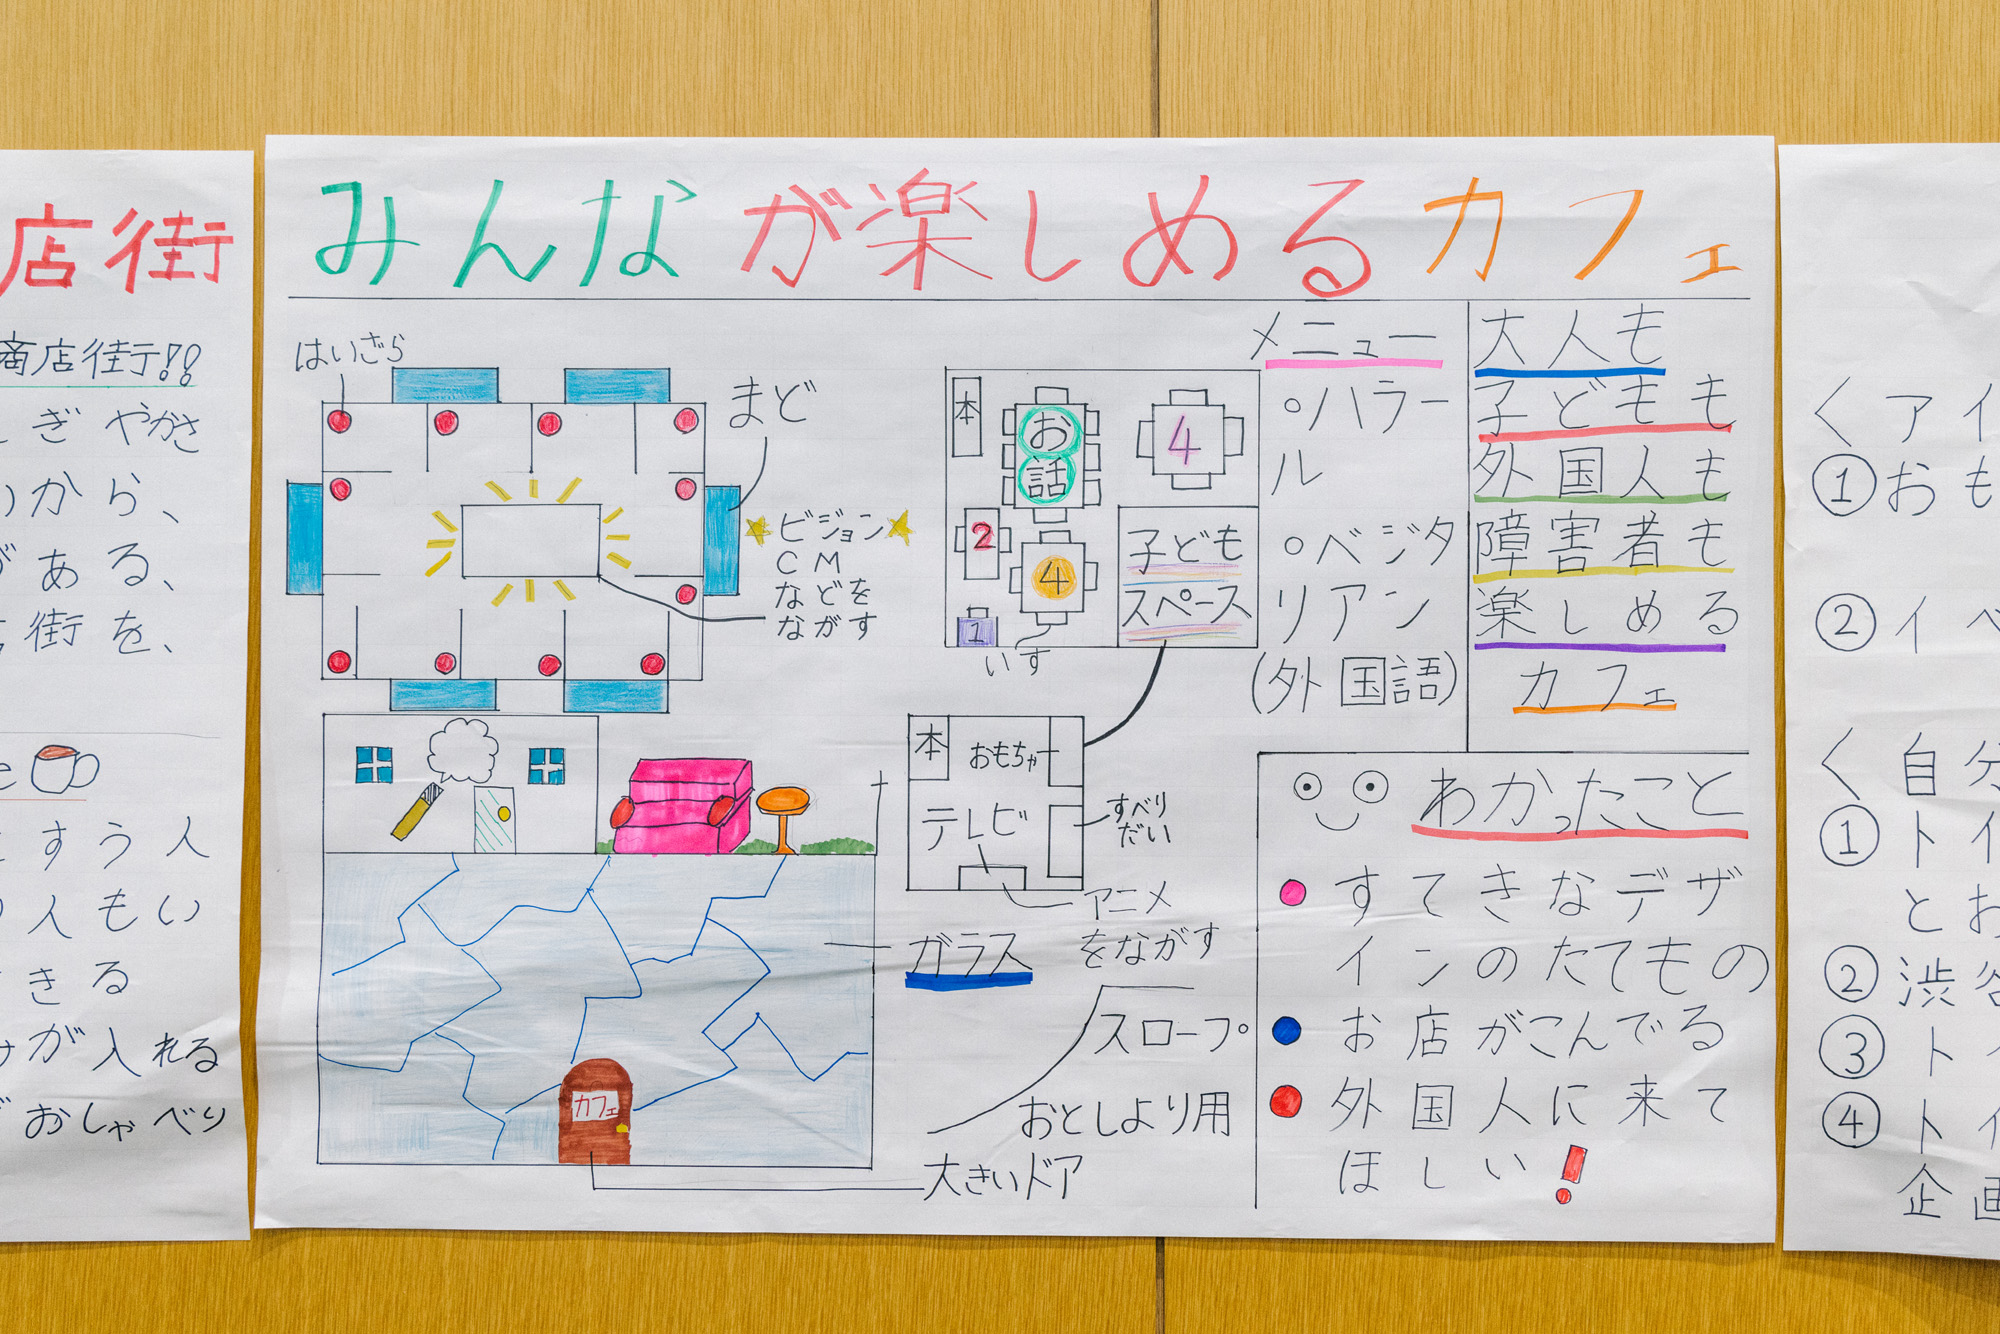 店街
商店街!!
ぎやかさ
から、
がある、
店街を、
すう人
人もい
きる
が入れる
おしゃべり
みんなが楽しめるカフェ
はいざら
まど
ビジョン
CM
などを
ながす
本
お
話
4
2
4
1
いす
子ども
スペース
本
おもちゃ
テレビ
すべり
だい
アニメ
をながす
ガラス
スロープ
おとしより用
カフェ
大きいドア
メニュー
○ハラー
ル
○ベジタ
リアン
(外国語)
大人も
子どもも
外国人も
障害者も
楽しめる
カフェ
わかったこと
すてきなデザ
インのたてもの
お店がこんでる
外国人に来て
ほしい!
<アイ
①おも
②イベ
<自分
①トイ
とお
②渋谷
③トイ
④トイ
企画